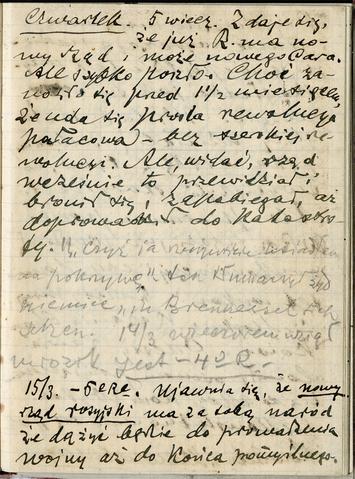 Czwartek. 5 wiecz. Zdaje się,
że już R. ma no-
wy rząd i może nowego Cara.
Ale szybko poszło. Choć za-
nosiło się przed 1½ miesiącem,
że uda się prosta rewolucja
pałacowa – bez szerokiej re-
wolucji. Ale, widać, rząd
wcześnie to przewidział i
bronił się, zabiegał, aż
doprowadził do katastro-
fy. "Czyż ja
na pokrywę" ten
niemiec, in
14/3 wieczorem
mrozik jest – 4º R.
15/3. – 5 Ujawnia się, że nowy
rząd rosyjski ma za sobą naród
że dążyć będzie do prowadzenia
wojny aż do końca pomyślnego.